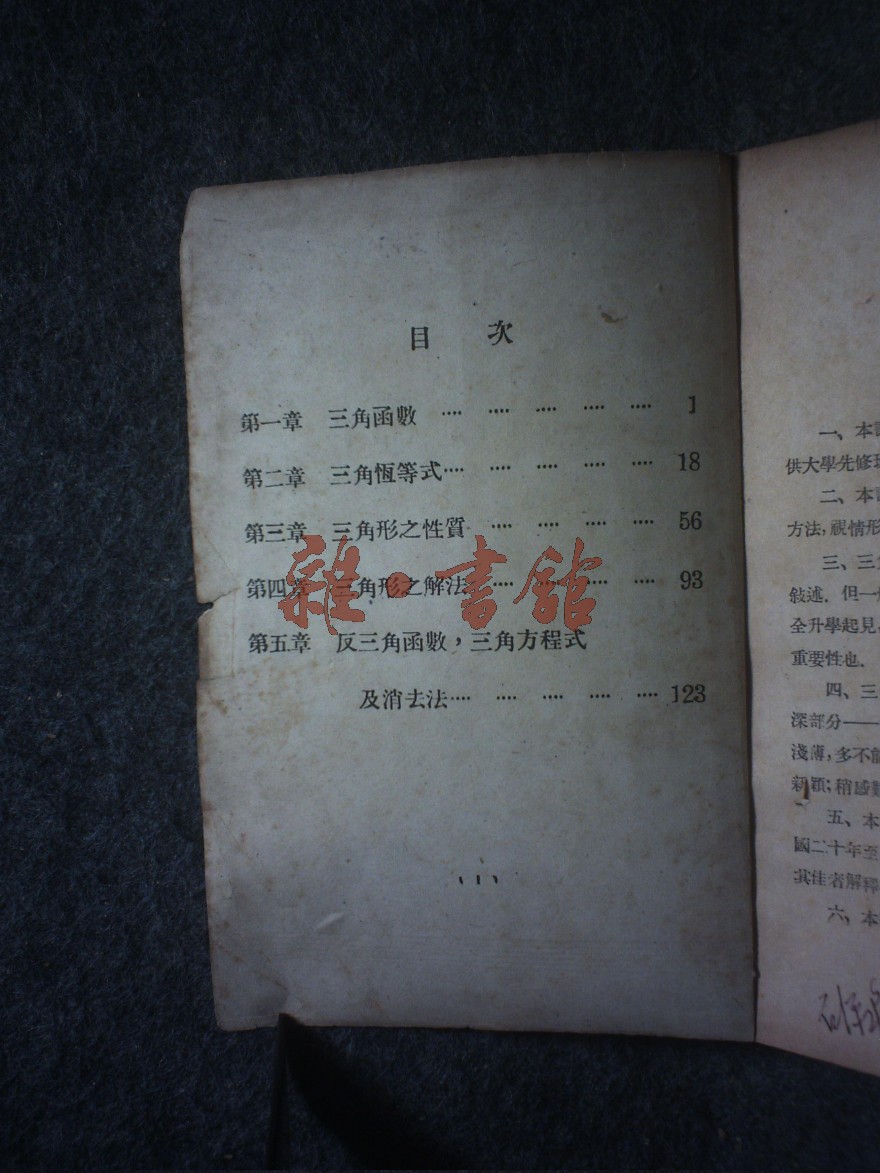 目 次
第一章 三角函數 ···· ···· ···· ···· ···· 1
第二章 三角恆等式···· ···· ···· ···· ···· 18
第三章 三角形之性質 ···· ···· ···· ···· 56
第四章 三角形之解法 ···· ···· ···· ···· 93
第五章 反三角函數，三角方程式
及消去法···· ···· ···· ···· ···· 123
( 1 )
雜·書館
一、本
供大學先修
二、本
方法，視情形
三、三
敍述．但一
全升學起見
重要性也．
四、三
深部分——
淺薄，多不能
新穎；稍感
五、本
國二十年至
其佳者解釋
六、本